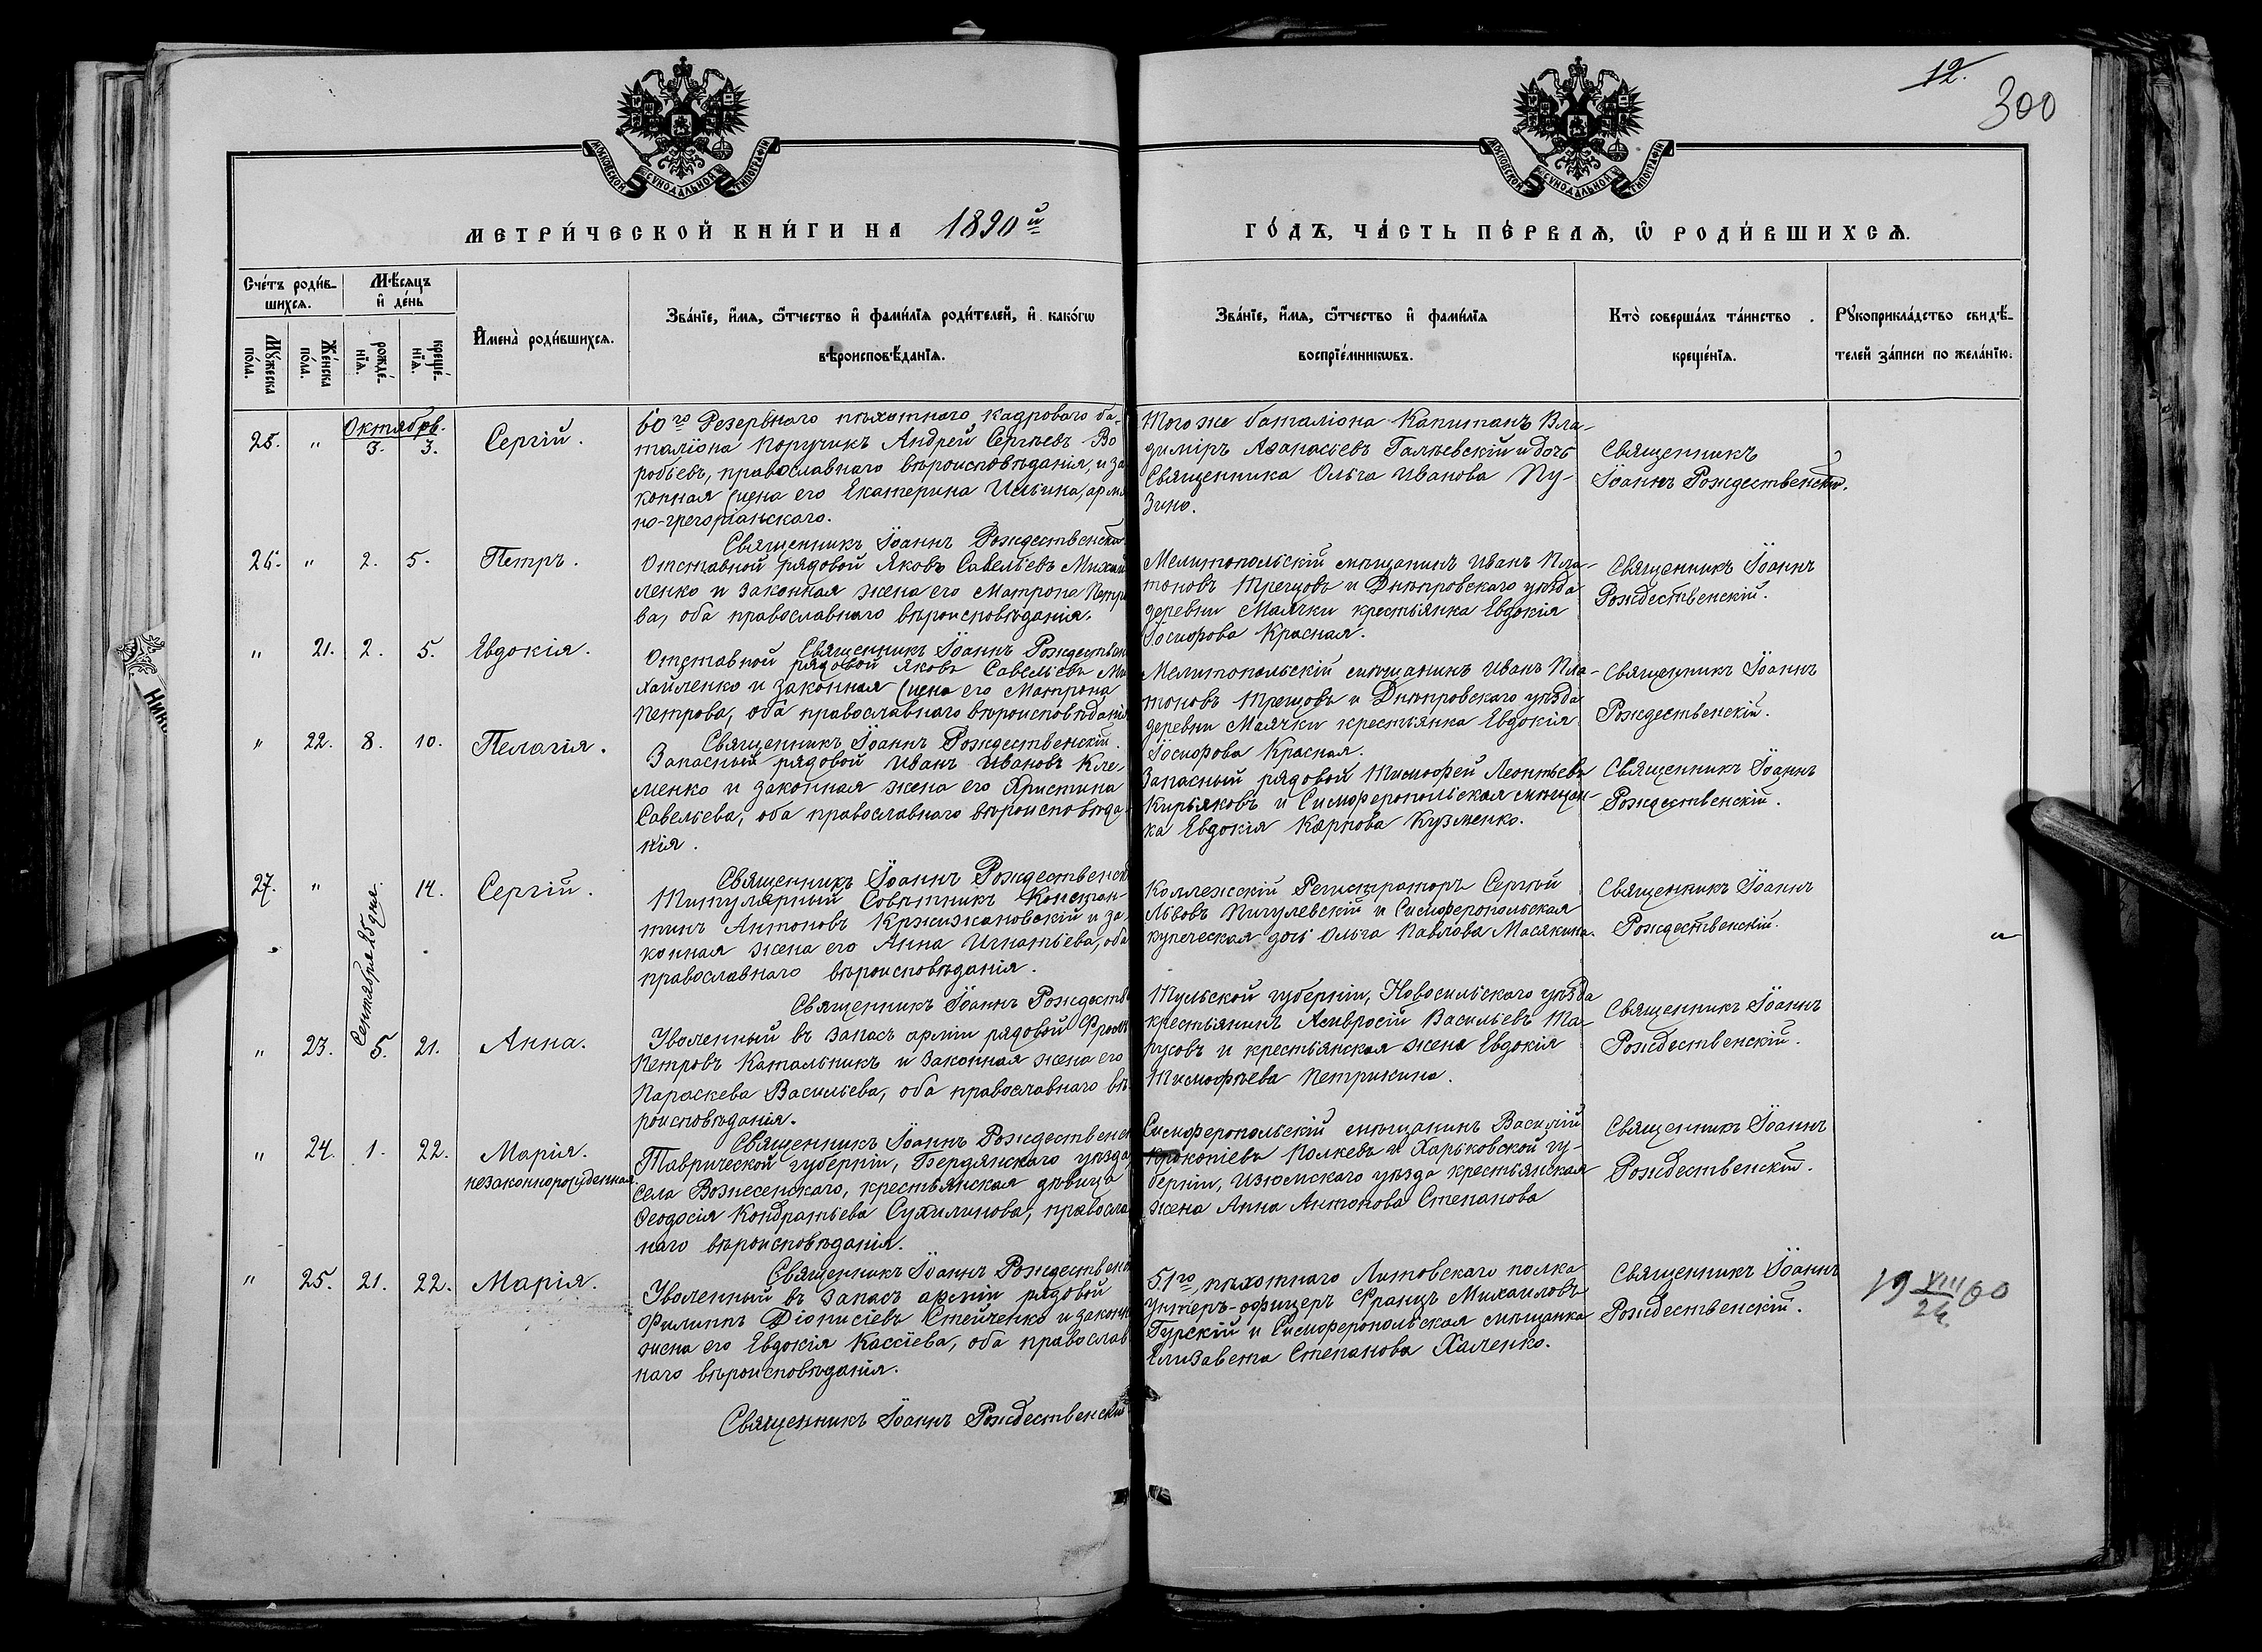 12.
300
МОСКОВСКОЙ СѴНОДАЛЬНОЙ ТИПОГРАФІИ
МОСКОВСКОЙ СѴНОДАЛЬНОЙ ТИПОГРАФІИ
МЕТРИ́ЧЕСКОЙ КНИ́ГИ НА 1890й
ГО́ДЪ, ЧА́СТЬ ПЕ́РВАѦ, Ѡ РОДИ́ВШИХСѦ.
Сче́тъ роди́в-
шихсѧ.
Мѣ́сѧцъ
и҆ де́нь
Мꙋ́жеска
по́ла.
Же́нска
по́ла.
рожде́-
нїѧ.
креще́-
нїѧ.
И҆мена̀ роди́вшихсѧ.
Зва́нїе, и҆́мѧ, ѻ҆́тчество и҆ фами́лїѧ роди́телей, и҆ како́гѡ
вѣроисповѣ́данїѧ.
Зва́нїе, и҆́мѧ, ѻ҆́тчество и҆ фами́лїѧ
воспрїе́мникѡвъ.
Кто̀ соверша́лъ та́инство
креще́нїѧ.
Рꙋкоприкла́дство свидѣ́-
телей за́писи по жела́нїю.
25. " Октябрь. 3. 3. Сергій.
60го Резервнаго пѣхотнаго кадроваго ба-
таліона Поручикъ Андрей Сергѣевъ Во
робьевъ, православнаго вѣроисповѣданія, и за
конная жена его Екатерина Ильина, армя
но-грегоріанскаго.
Священникъ Іоаннъ Рождественскі
Того же баталіона Капитанъ Вла-
диміръ Аѳанасіевъ Галѣевскій и дочь
Священника Ольга Иванова Пу-
зино.
Священникъ
Іоаннъ Рождественскій.
26. " 2. 5. Петръ.
Отставной рядовой Яковъ Савельевъ Михай
ленко и законная жена его Матрона Петро
ва, оба православнаго вѣроисповѣданія.
Священникъ Іоаннъ Рождествен
Мелитопольскій мѣщанинъ Иванъ Пла-
тоновъ Трегцовъ и Днѣпровскаго уѣзда
деревни Маячки крестьянка Евдокія
Іосифова Красная.
Священникъ Іоаннъ
Рождественскій.
" 21. 2. 5. Евдокія.
Отставной рядовой Яковъ Савельевъ Ми
хайленко и законная жена его Матрона
Петрова, оба православнаго вѣроисповѣданія
Священникъ Іоаннъ Рождественскій.
Мелитопольскій мѣщанинъ Иванъ Пла-
тоновъ Трегцовъ и Днѣпровскаго уѣзда
деревни Маячки крестьянка Евдокія
Іосифова Красная.
Священникъ Іоаннъ
Рождественскій.
" 22. 8. 10. Пелагія.
Запасный рядовой Иванъ Ивановъ Кле-
менко и законная жена его Христина
Савельева, оба православнаго вѣроисповѣда-
нія.
Священникъ Іоаннъ Рождественск
Запасный рядовой Тимофей Леонтьевъ
Кирьяковъ и Симферопольская мѣщан-
ка Евдокія Карпова Кузменко.
Священникъ Іоаннъ
Рождественскій.
27. " Сентября 25 дня. 14. Сергій.
Титулярный Совѣтникъ Констан-
тинъ Антоновъ Кржижановскій и за-
конная жена его Анна Игнатьева, оба
православнаго вѣроисповѣданія.
Священникъ Іоаннъ Рождеств
Коллежскій Регистраторъ Сергѣй
Львовъ Пигулевскій и Симферопольская
купеческая дочь Ольга Павлова Масякина.
Священникъ Іоаннъ
Рождественскій.
" 23. 5. 21. Анна.
Уволенный въ запасъ арміи рядовой Фролъ
Петровъ Катальникъ и законная жена его
Параскева Васильева, оба православнаго вѣ
роисповѣданія.
Священникъ Іоаннъ Рождественс
Тульской губерніи, Новосильскаго уѣзда
крестьянинъ Амвросій Васильевъ Та-
русовъ и крестьянская жена Евдокія
Тимофѣева Петрикина.
Священникъ Іоаннъ
Рождественскій.
" 24. 1. 22. Марія.
незаконнорожденная.
Таврической губерніи, Бердянскаго уѣзда
села Вознесенскаго, крестьянская дѣвица
Ѳеодосія Кондратьева Сухилинова, правосла
наго вѣроисповѣданія.
Священникъ Іоаннъ Рождествен
Симферопольскій мѣщанинъ Василій
Прокопіевъ Полкевъ и Харьковской гу-
берніи, Изюмскаго уѣзда крестьянская
жена Анна Антонова Степанова
Священникъ Іоаннъ
Рождественскій.
" 25. 21. 22. Марія.
Уволенный въ запасъ арміи рядовой
Филиппъ Діонисіевъ Стейченко и законн
жена его Евдокія Кассіева, оба православ
наго вѣроисповѣданія.
Священникъ Іоаннъ Рождественскій
51го пѣхотнаго Литовскаго полка
Унтеръ-офицеръ Францъ Михаиловъ
Гурскій и Симферопольская мѣщанка
Елизавета Степанова Халенко.
Священникъ Іоаннъ
Рождественскій.
19 VIII/24 00